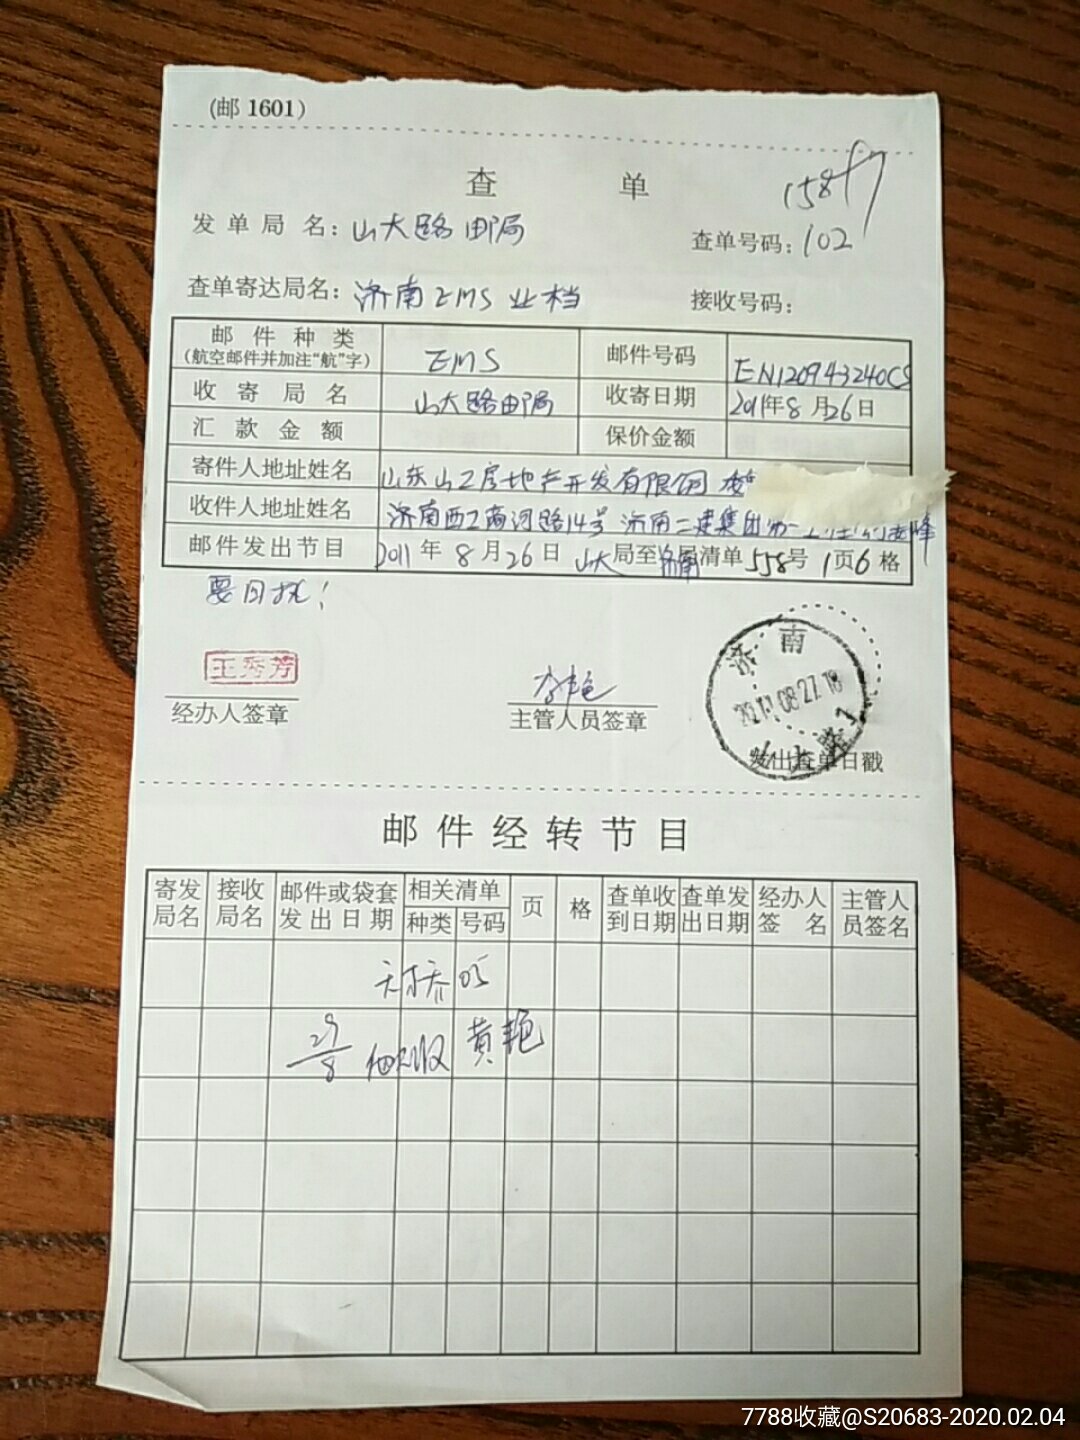 (邮1601)
查 单
发单局名：山大路邮局
查单号码：102
查单寄达局名：济南EMS业档
接收号码：
邮件种类
(航空邮件并加注“航”字)
EMS
邮件号码
EN120943240CS
收寄局名
山大路邮局
收寄日期
2011年8月26日
汇款金额
保价金额
寄件人地址姓名
山东山工房地产开发有限公司
收件人地址姓名
济南西工商河路14号 济南二建集团
邮件发出节目
2011年8月26日 山大局至济南局清单558号 1页6格
要回执！
王秀芳
经办人签章
主管人员签章
济南
2011.08.27.18
发出查单日戳
邮件经转节目
寄发局名
接收局名
邮件或袋套发出日期
相关清单
种类
号码
页
格
查单收到日期
查单发出日期
经办人签名
主管人员签名
天桥 05
29/8 他人收 黄艳
7788收藏@S20683-2020.02.04